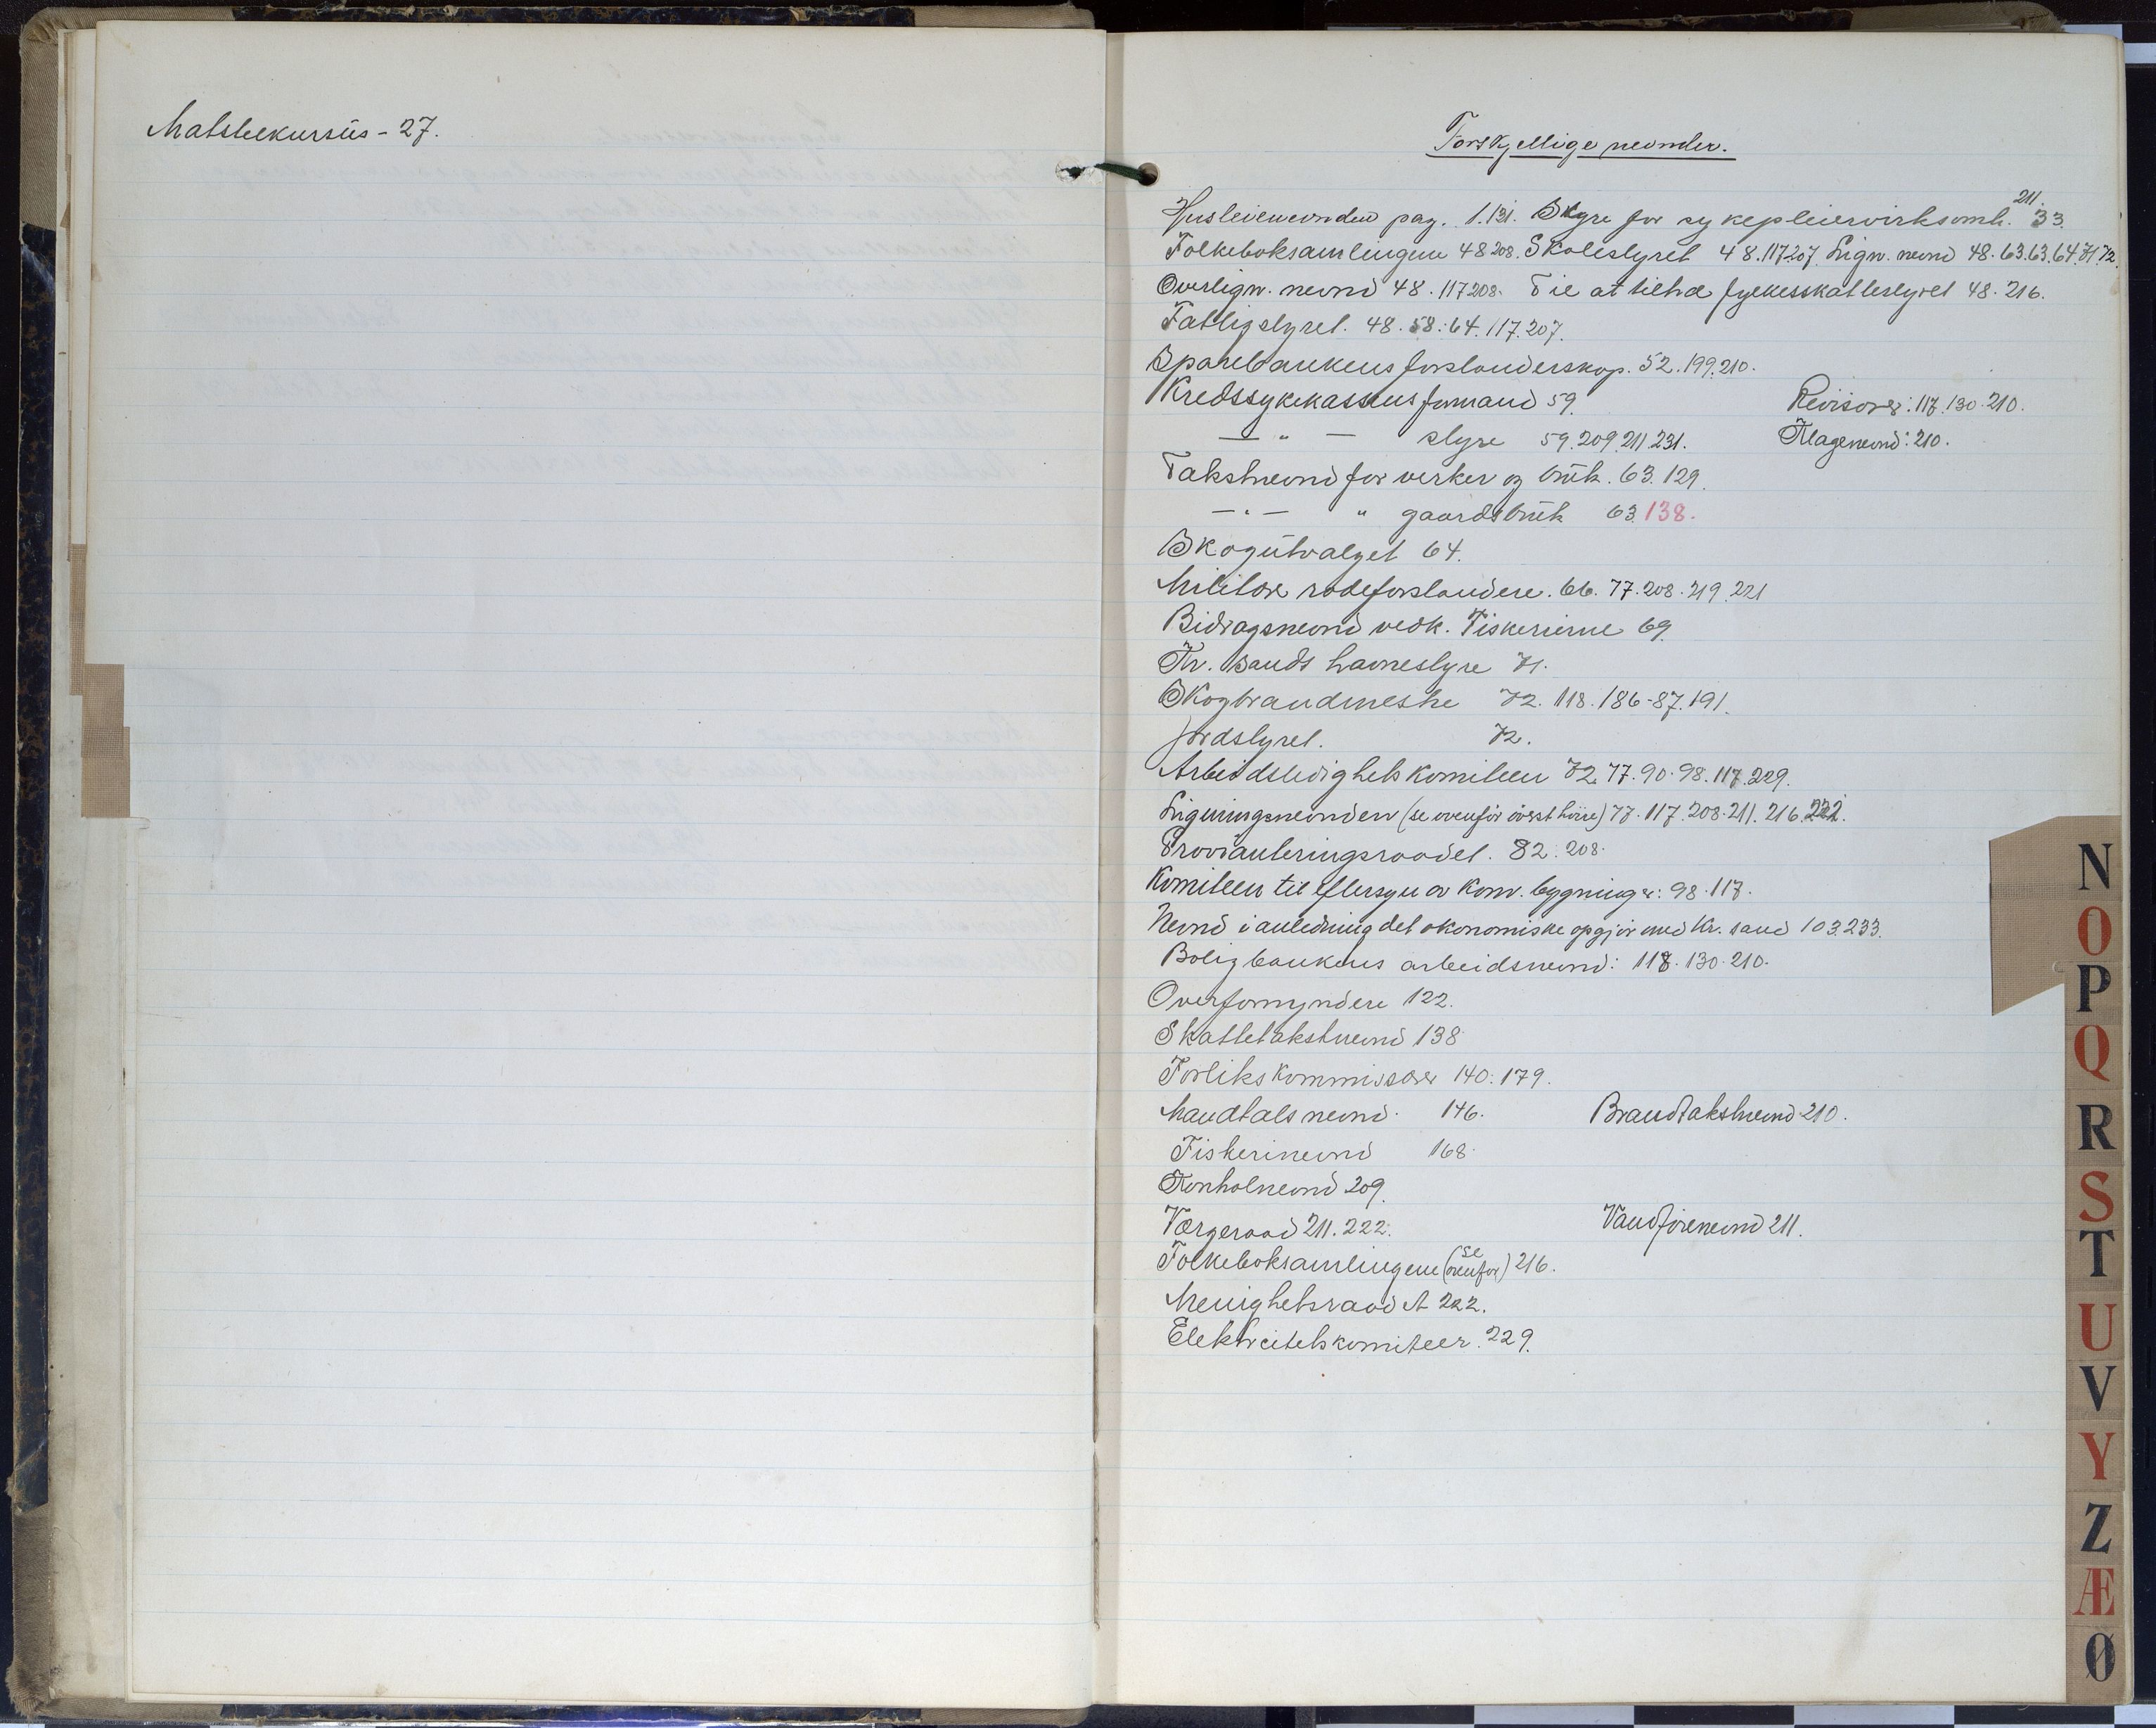 Matstelkursus - 27.
Forskjellige nevnder.
Husleienevnden pag. 1.131. Styre for sykepleiervirksomh. 211. 33.
Folkeboksamlingene 48 208. Skolestyret 48.117.207. Lign. nevnd 48.63.63.64.71.72.
Overlign. nevnd 48.117 208. Til at tiltræ fylkesskattestyret 48.216.
Fattigstyret. 48.58.64.117.207.
Sparebankens forstanderskap. 52.199.210.
Kredssykekassens formand 59. Revisorer: 117.130.210.
— " — styre 59.209.211.231. Klagenevnd: 210.
Takstnevnd for verker og bruk. 63.129.
— " — " gaardsbruk 63.138.
Skogutvalget 64.
Militære rodeforstandere. 66.77.208.219.221
Bidragsnevnd vedk. Fiskerierne 69.
Kr. sands havnestyre 71.
Skogbrandmestre 72.118.186-87.191.
Jordstyret. 72.
Arbeidsledighetskomiteen 72.77.90.98.117.229.
Ligningsnevnden (se ovenfor øverst høire) 77.117.208.211.216.222.
Provianteringsraadet. 82.208.
Komiteen til eftersyn av kom. bygninger: 98.117.
Nevnd i anledning det økonomiske opgjør med Kr. sand 103.233.
Boligbankens arbeidsnevnd: 118.130.210.
Overformyndere 122.
Skattetakstnevnd 138
Forlikskommissærer 140.179.
Mandtalsnevnd. 146. Brandtakstnevnd 210.
Fiskerinevnd 168.
Kontrolnevnd 209.
Værgeraad 211.222. Vandførenevnd 211.
Folkeboksamlingene (se ovenfor) 216.
Menighetsraadet 222.
Elektricitetskomiteer. 229.
N
O
P
Q
R
S
T
U
V
Y
Z
Æ
Ø